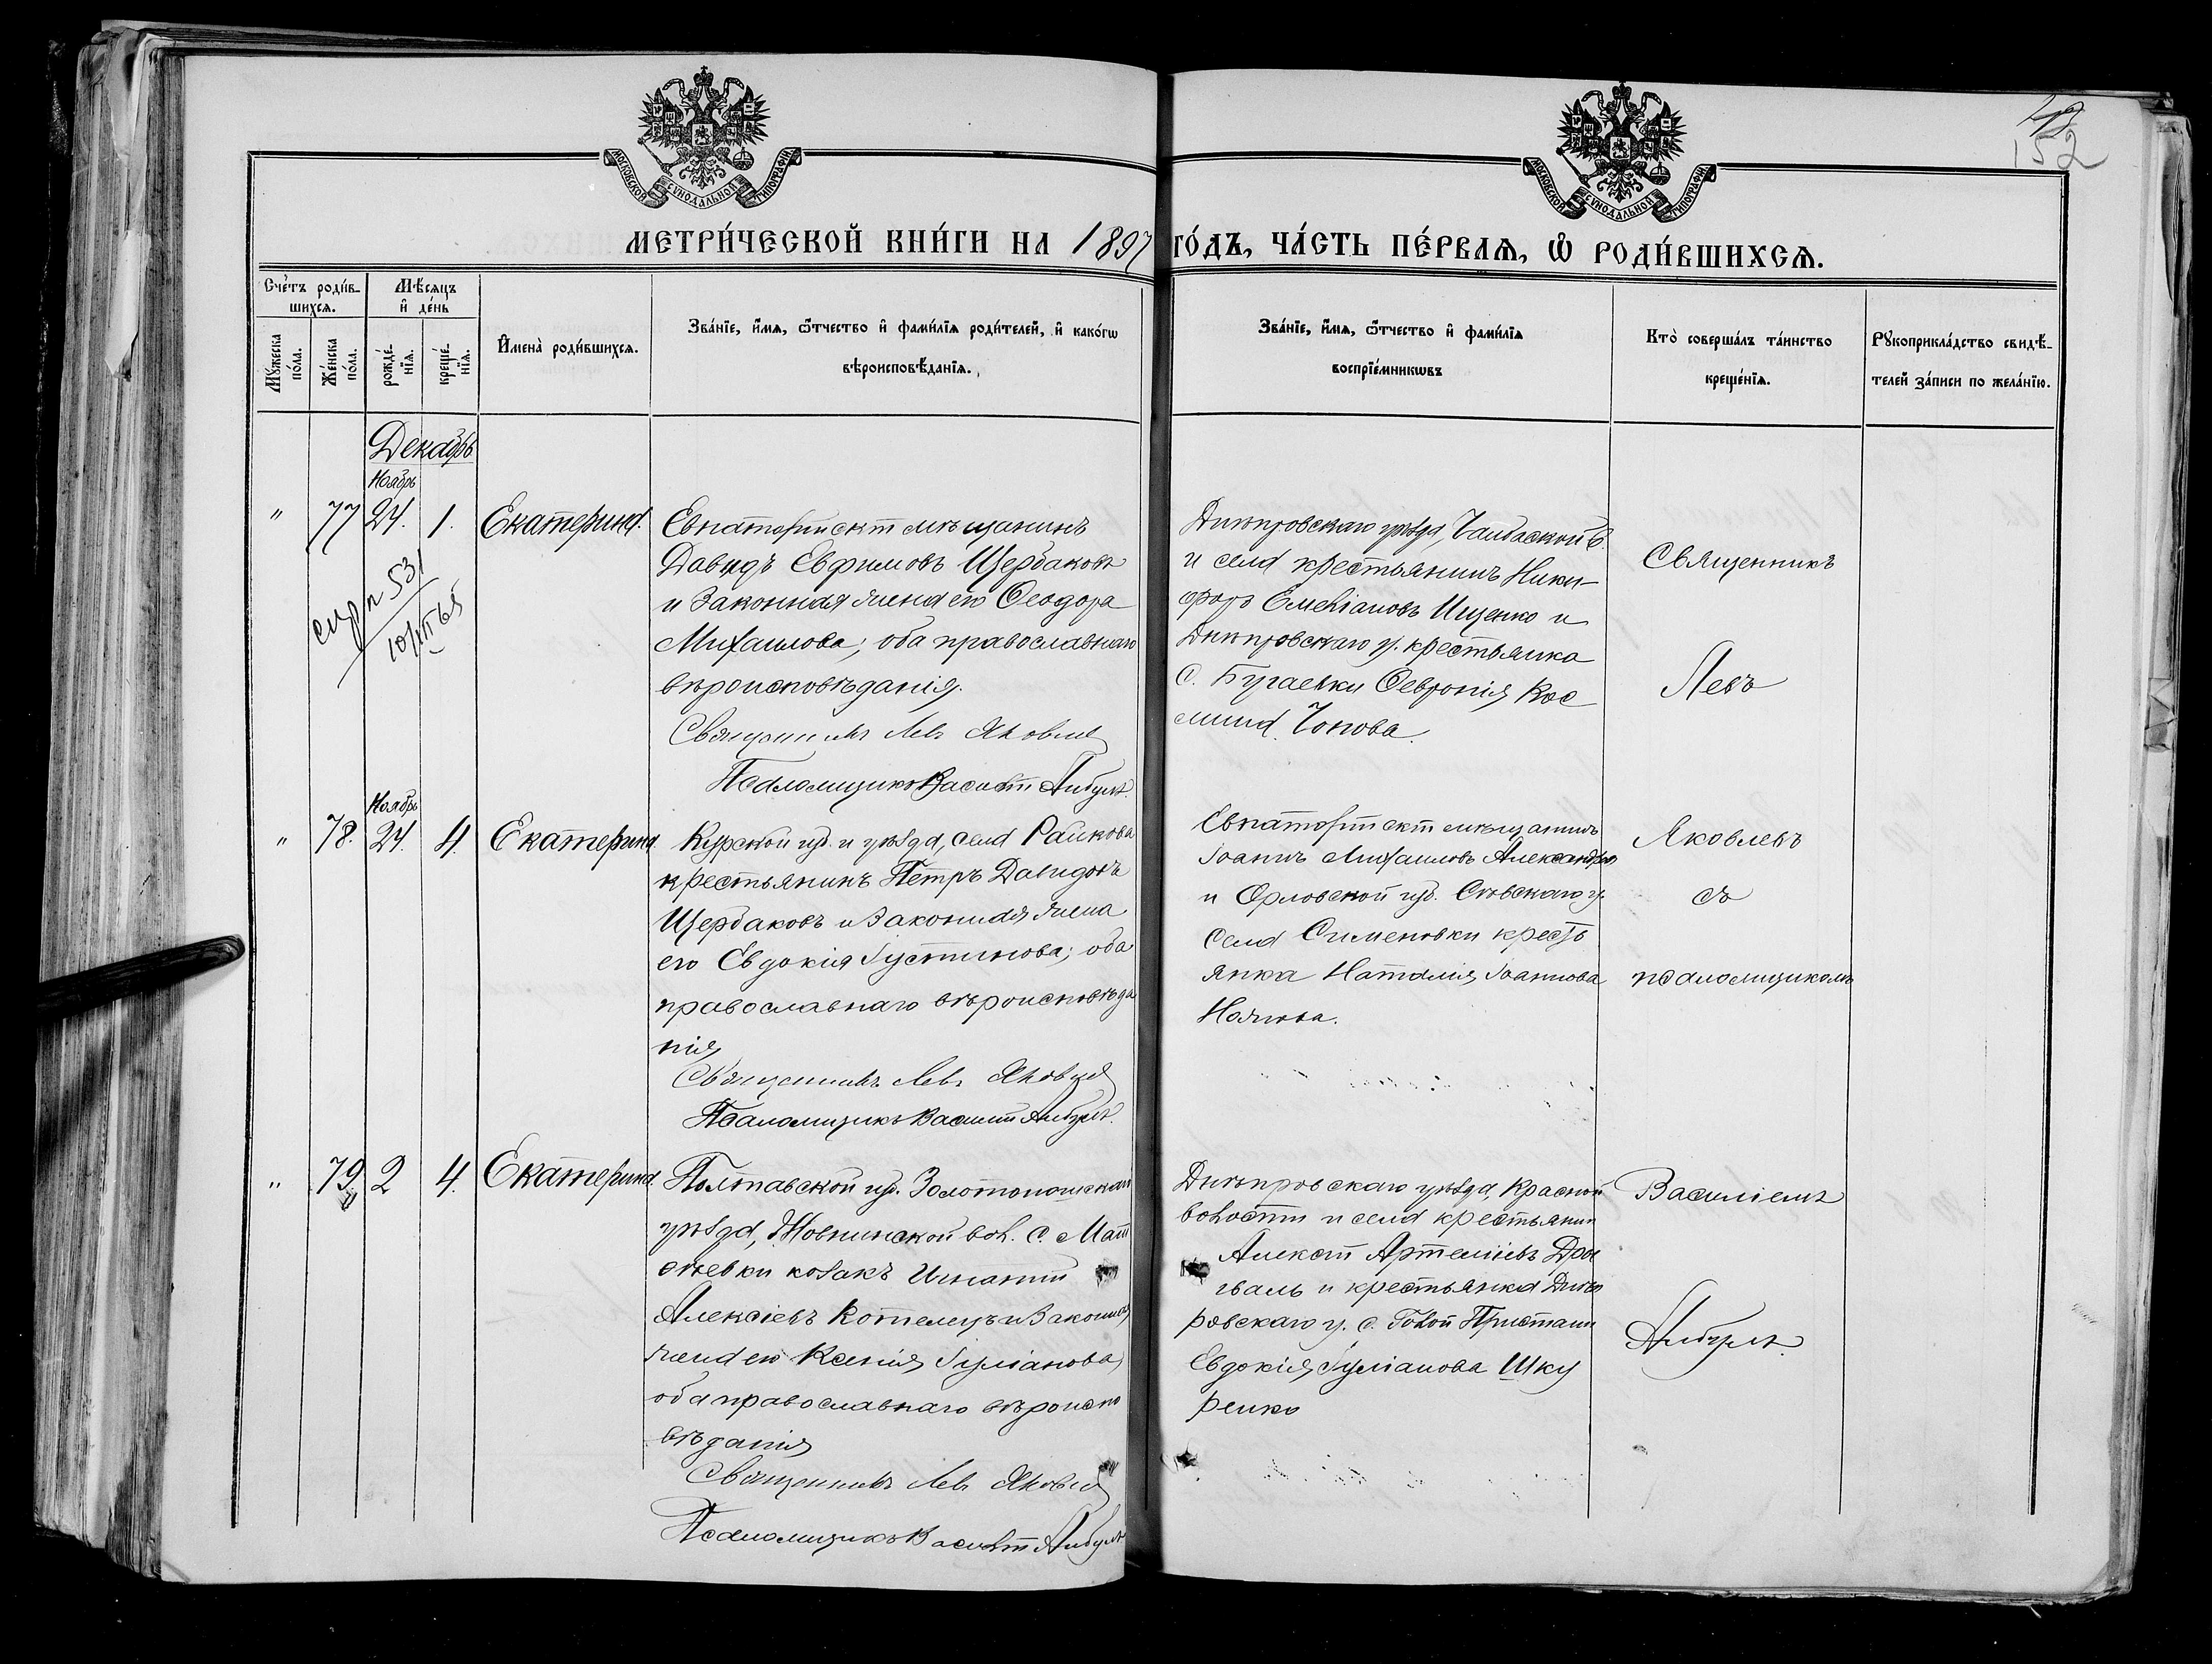 48
152
МОСКОВСКОЙ СѴНОДАЛЬНОЙ ТИПОГРАФІИ
МОСКОВСКОЙ СѴНОДАЛЬНОЙ ТИПОГРАФІИ
МЕТРИ́ЧЕСКОЙ КНИ́ГИ НА 1897 ГО́ДЪ, ЧА́СТЬ ПЕ́РВАѦ, Ѡ РОДИ́ВШИХСѦ.
Сче́тъ роди́в-
шихсѧ.
Мꙋ́жеска по́ла.
Же́нска по́ла.
Мѣ́сѧцъ
и҆ де́нь
рожде́-
нїѧ.
креще́-
нїѧ.
И҆мена̀ роди́вшихсѧ.
Зва́нїе, и҆́мѧ, ѻ҆́тчество и҆ фами́лїѧ роди́телей, и҆ како́гѡ
вѣроисповѣ́данїѧ.
Зва́нїе, и҆́мѧ, ѻ҆́тчество и҆ фами́лїѧ
воспрїе́мникѡвъ
Кто̀ соверша́лъ та́инство
креще́нїѧ.
Рꙋкоприкла́дство свидѣ́-
телей за́писи по жела́нїю.
Декабрь
Ноябрь
" 77 24. 1. Екатерина.
531
10/III 65
Евпаторійскій мѣщанинъ
Давидъ Евфимовъ Щербаковъ
и законная жена его Ѳеодора
Михаилова; оба православнаго
вѣроисповѣданія.
Священникъ Левъ Яковлевъ
Псаломщикъ Василій
Днѣпровскаго уѣзда, Чалбаской в.
и села крестьянинъ Ники-
форъ Емеліановъ Ищенко и
Днѣпровскаго у. крестьянка
с. Бугаевки Ѳевронія Кос
мина
Священникъ
Левъ
Ноябрь
" 78. 24. 4. Екатерина
Курской губ. и уѣзда, села Райкова
крестьянинъ Петръ Давидовъ
Щербаковъ и законная жена
его Евдокія Іустинова; оба
православнаго вѣроисповѣда
нія
Священникъ Левъ Яковлевъ
Псаломщикъ Василій
Евпаторійскій мѣщанинъ
Іоаннъ Михаиловъ Александровъ
и Орловской губ. Сѣвскаго у.
села Сименовки кресть
янка Наталія Іоаннова
Яковлевъ
съ
псаломщикомъ
" 79. 2 4. Екатерина.
Полтавской губ. Золотоношскаго
уѣзда, Жовнинской вол. с. Мат
вѣевки козакъ Игнатій
Алексіевъ Котелецъ и законная
жена его Ксенія Іуліанова,
оба православнаго вѣроиспо
вѣданія
Священникъ Левъ Яковлевъ
Псаломщикъ Василій
Днѣпровскаго уѣзда, Красной
волости и села крестьянин
Алексій Артеміевъ Дов
галь и крестьянка Днѣп
ровскаго у. с. Голой Пристани
Евдокія Іуліанова Шку
ренко
Василіемъ